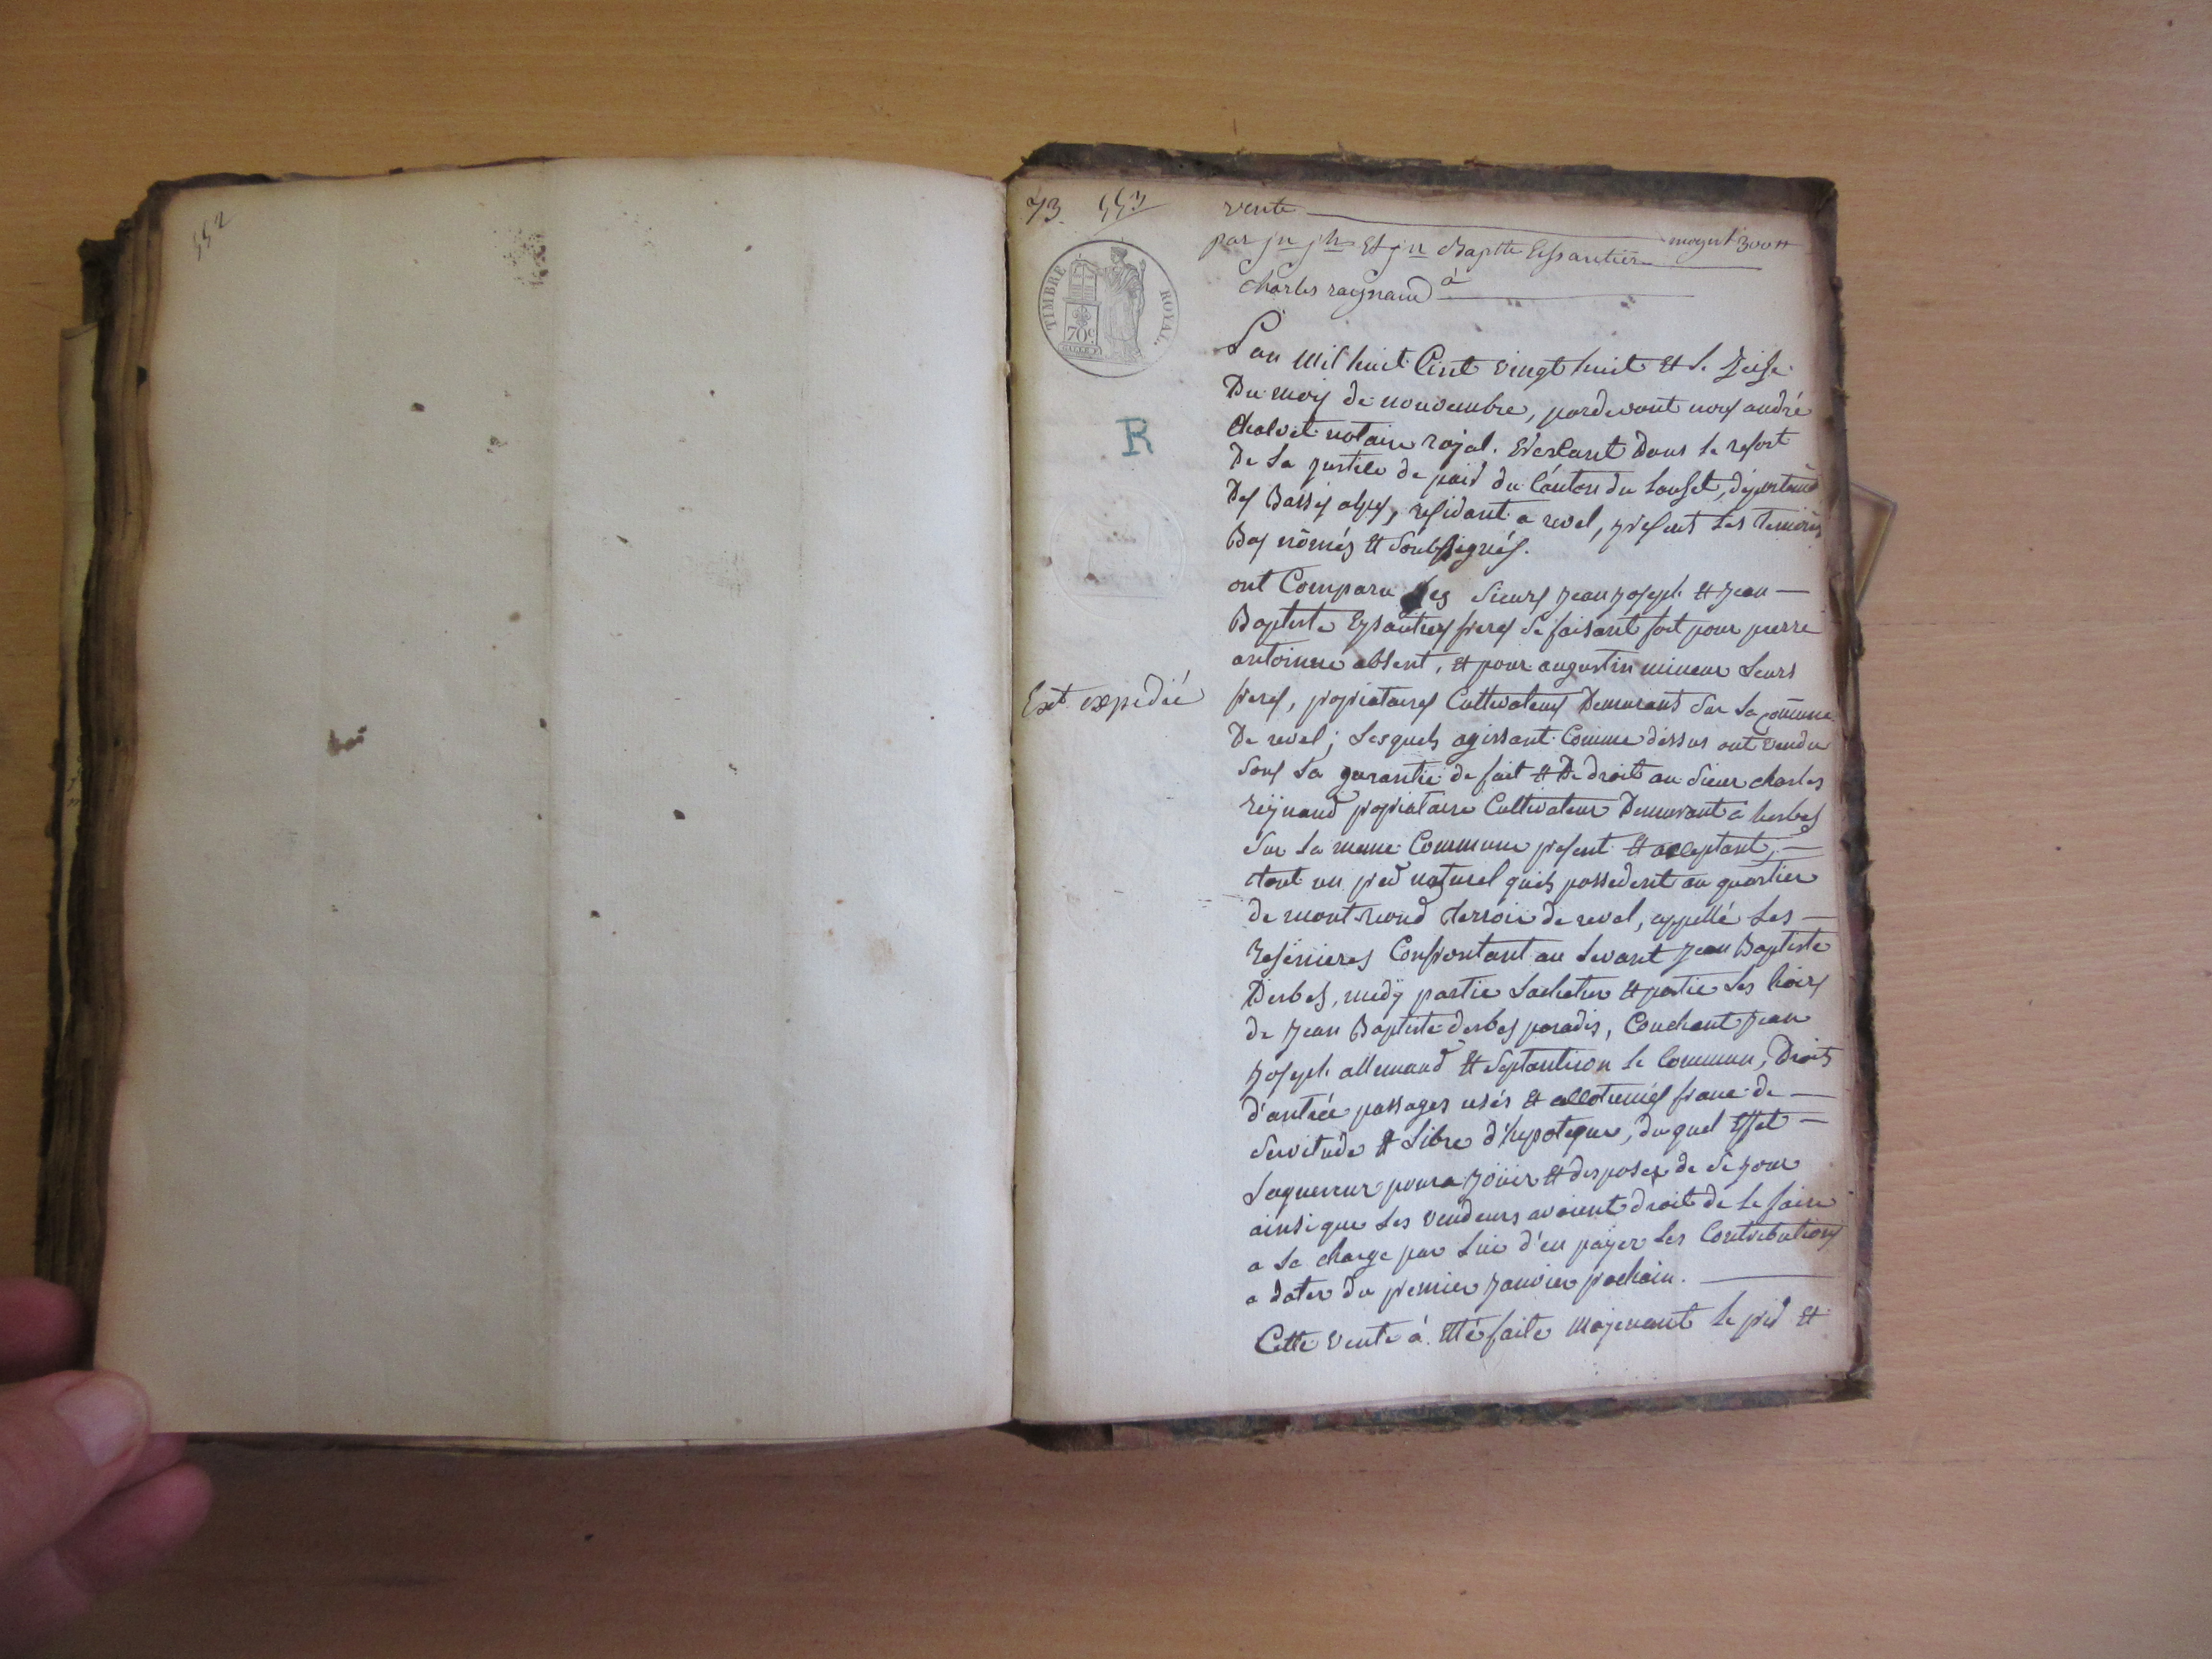 552
73. 553
vente
moyent 300 #
par jn jh Et jn Baptte Eissautier
à
Charles raynaud
TIMBRE ROYAL.
70c
R
L'an mil huit Cent vingt huit et le seise
Du mois de novembre, pardevant nous andré
Chalvet notaire royal. Exerçant Dans le resort
De la justice de paix du Canton du Lauset, départemt
Des Basses alpes, residant a revel, presents les temoins
Bas nômés et Soubsignés.
ont Comparu les Sieurs jean joseph et jean —
Baptiste Eysautier freres se faisant fort pour pierre
antoinne absent, et pour augustin mineur leurs
freres, propriataires Cultivateurs Demurants sur la cõmune
De revel; lesquels agissant Comme dessus ont vendu
sous la garantie de fait et De droit au sieur charles
reynaud propriataire Cultivateur Demurant a herbes
sur la meme Commune present et acceptant, —
tout un pred naturel quils possedent au quartier
de mont riond terroir de revel, appellé les —
Confrontant au levant jean Baptiste
Derbes, midÿ partie lacheteur et partie les hoirs
de jean Baptiste derbes paradis, Couchant jean
joseph allemand et Septantrion le Commun, Droits
d'antrée passages usés et franc de —
Servitude et libre d'hypoteque, du quel Effet —
laquereur poura joüir et disposer de se jour
ainsi que les vendeurs avoient droit de le faire
a la charge par lui d'en payer les Contributions
a dater du premier janvier prochain.
Cette vente á Etté faite moyenant le prix et
Ext expedié